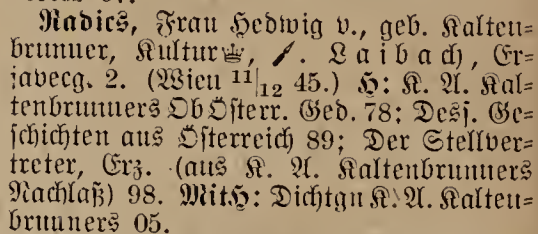 Radics, Frau Hedwig v., geb. Kalten=
brunner, Kultur♕, /. Laibach, Er=
javecg. 2. (Wien 11/12 45.) H: K. A. Kal=
tenbrunners ObÖsterr. Ged. 78; Desj. Ge=
schichten aus Österreich 89; Der Stellver=
treter, Erz. (aus K. A. Kaltenbrunners
Nachlaß) 98. MitH: Dichtgn K. A. Kalten=
brunners 05.